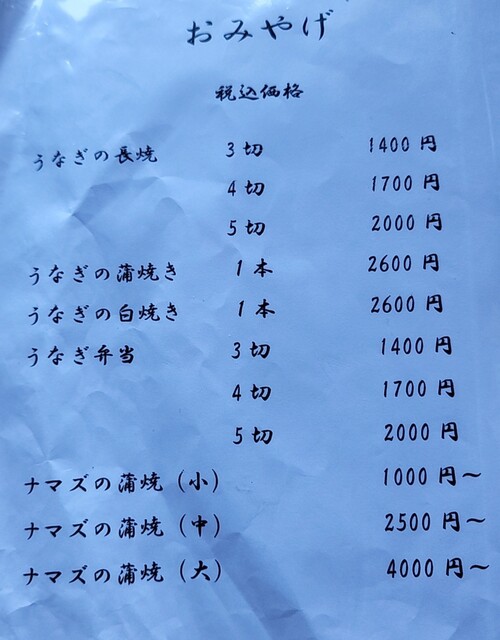 おみやげ
税込価格
うなぎの長焼 3切 1400円
4切 1700円
5切 2000円
うなぎの蒲焼き 1本 2600円
うなぎの白焼き 1本 2600円
うなぎ弁当 3切 1400円
4切 1700円
5切 2000円
ナマズの蒲焼（小） 1000円～
ナマズの蒲焼（中） 2500円～
ナマズの蒲焼（大） 4000円～